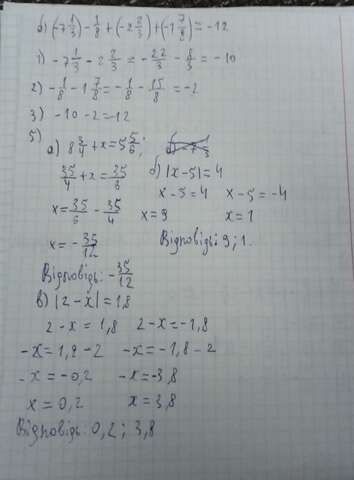 б) (-7 1/3) - 1/8 + (-2 2/3) + (-1 7/8) = -12
1) -7 1/3 - 2 2/3 = -22/3 - 8/3 = -10
2) -1/8 - 1 7/8 = -1/8 - 15/8 = -2
3) -10 - 2 = -12
5)
а) 8 3/4 + x = 5 5/6;
35/4 + x = 35/6
x = 35/6 - 35/4
x = -35/12
Відповідь: -35/12
б) |x-5| = 4
x-5=4 x-5=-4
x=9 x=1
Відповідь: 9; 1.
в) |2-x| = 1,8
2-x = 1,8 2-x=-1,8
-x=1,8-2 -x=-1,8-2
-x=-0,2 -x=-3,8
x=0,2 x=3,8
Відповідь: 0,2; 3,8